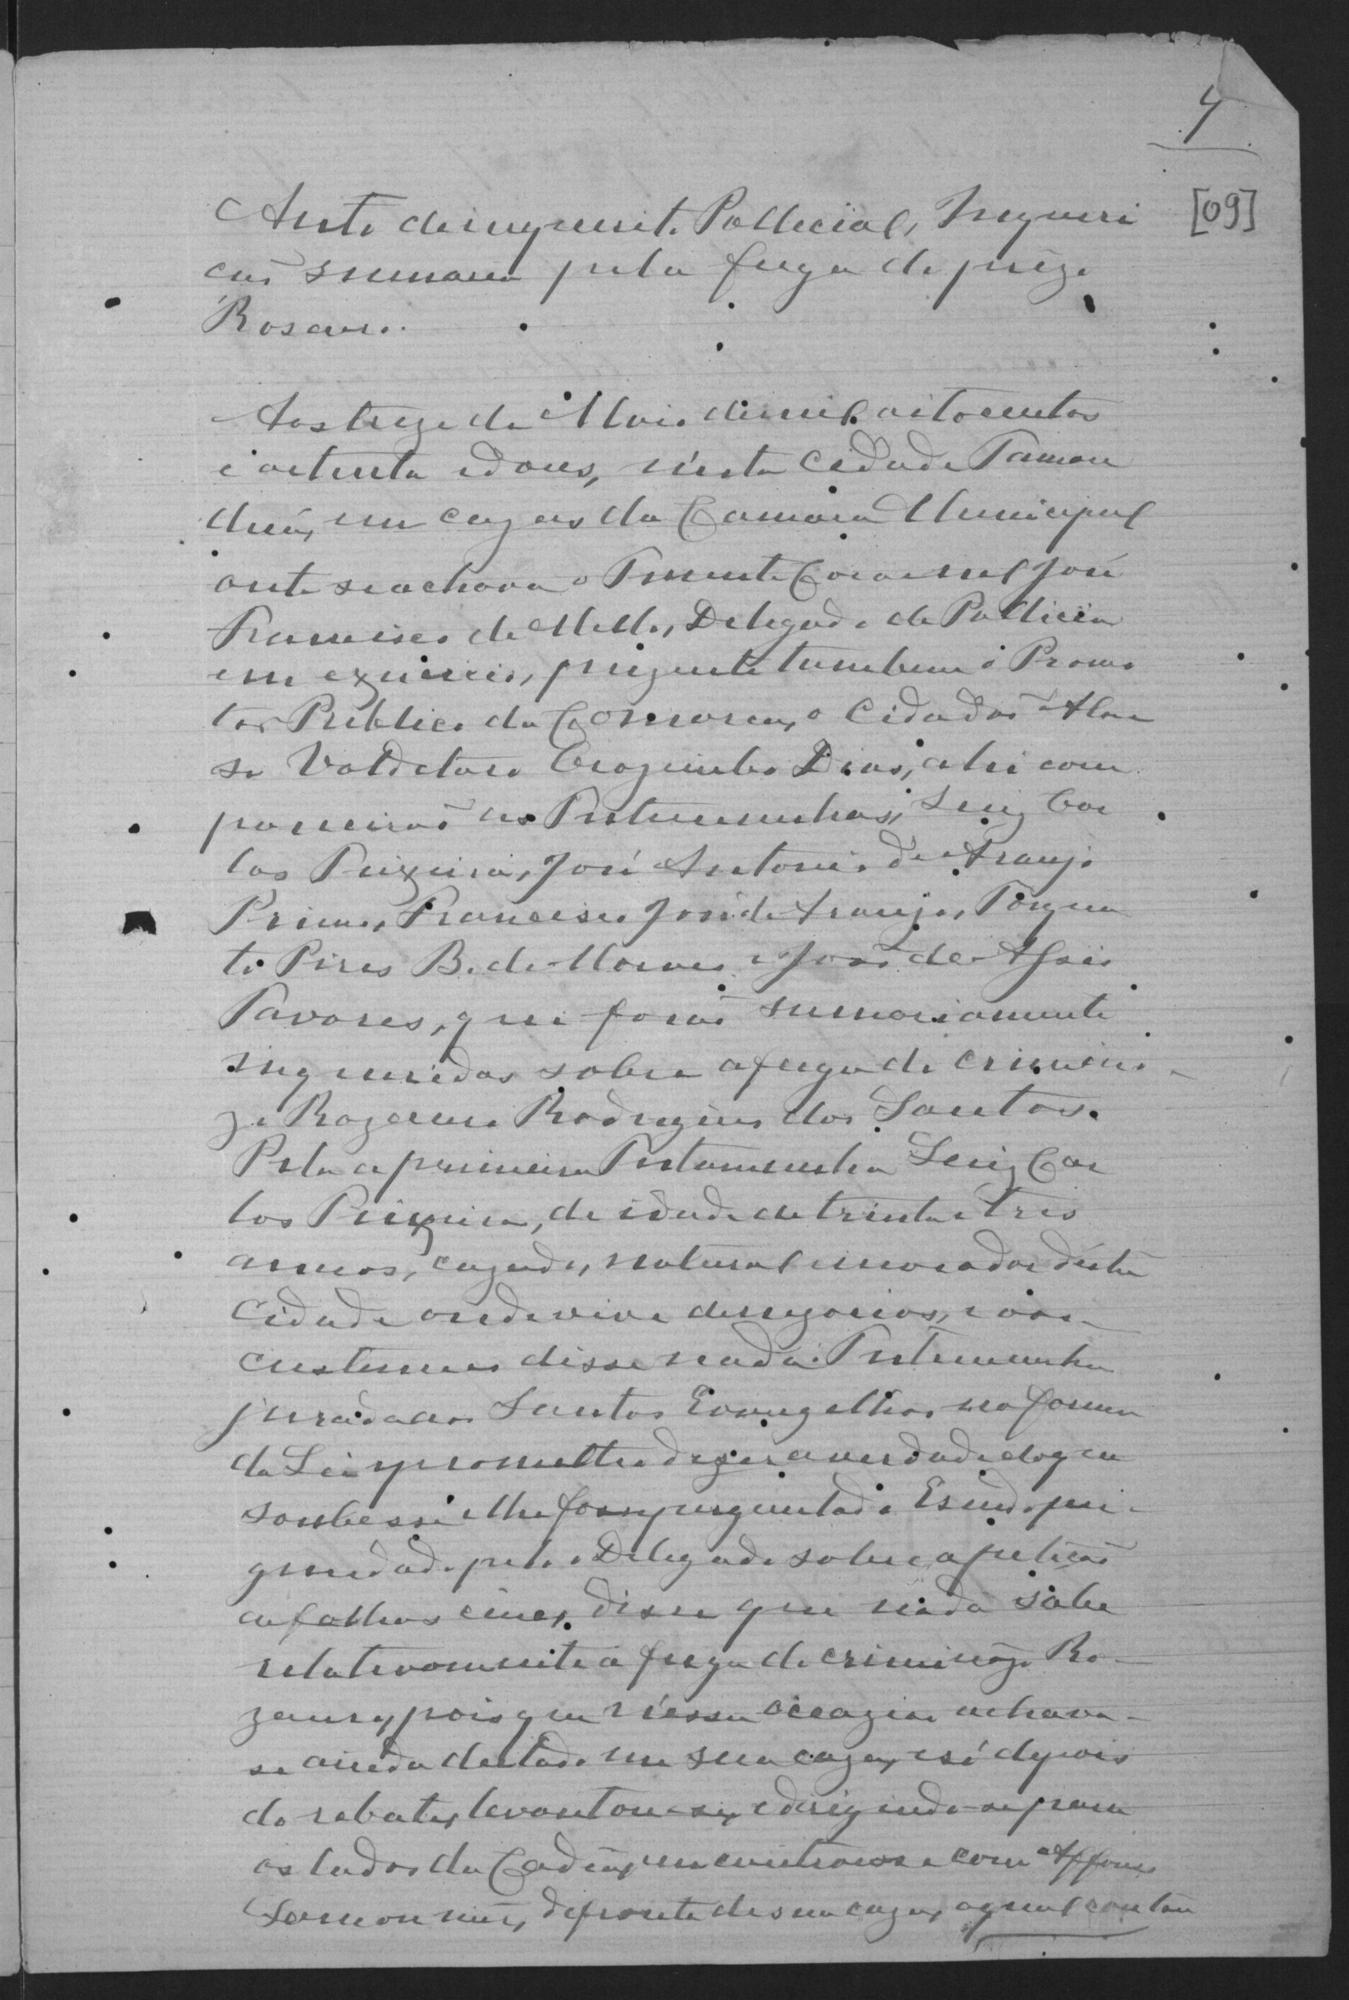 4
[09]
Auto de inquerito Pollecial, Inqueri
cão sumaria pela fuga do prezo
Rosauro.
Aos treze de Maio de mil oitocentos
e oitenta e dous, n'esta Cidade Taman
duá, em cazas da Camara Municipal
onde se achava o Tenente Coronel José
Francisco de Mello, Delegado de Pollicia
em exercicio, prezente tambem o Promo
tor Publico da Comarca, o Cidadão
so Dias, ahi com
parecerão as Testemunhas, Luiz Car
los Teixeira, José Antonio de Araujo
Primo, Francisco José de Araujo, Torqua
to Pires B. de Moraes e João de Assis
Tavares, que forão sumariamente
inqueridas sobre a fuga do crimino
zo Rozauro Rodrigues dos Santos.
Pela a primeira Testemunha Luiz Car
los Teixeira, de idade de trinta e tres
annos, cazado, natural e morador désta
Cidade onde vive de negocios, e aos
custumes disse nada. Testemunha
jurada aos Santos Evangelhos na forma
da Lei e prometteo dizer a verdade do que
soubesse e lhe fosse perguntado. E sendo in
querido pelo Delegado sobre a petição
a folhas cinco, disse que nada sabe
relativamente a fuga do criminozo Ro-
zauro, pois que n'essa occazião achava-
se ainda deitado em sua caza, e só depois
do rebate, levantou-se, e derigindo-se para
os lados da Cadêa, encontrou-se com Affonso
Lamounier, defronte de sua caza, o qual contou